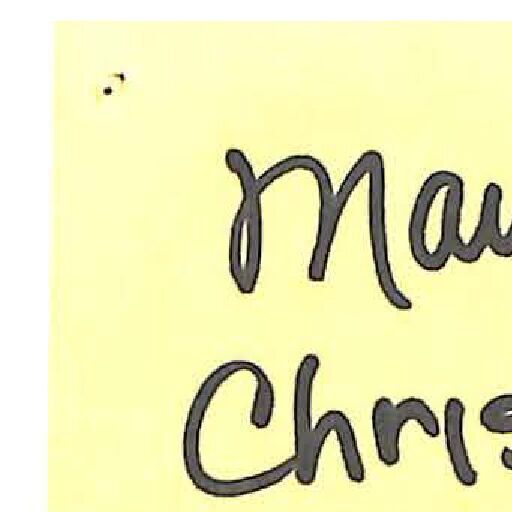 Mau
Chris